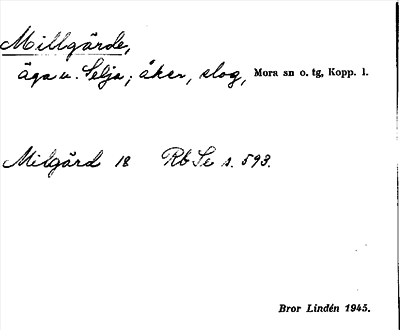 Millgärde,
äga u. Selja; åker, slog, Mora sn o. tg, Kopp. l.
Milgård 18 Rb Se s. 593.
Bror Lindén 1945.